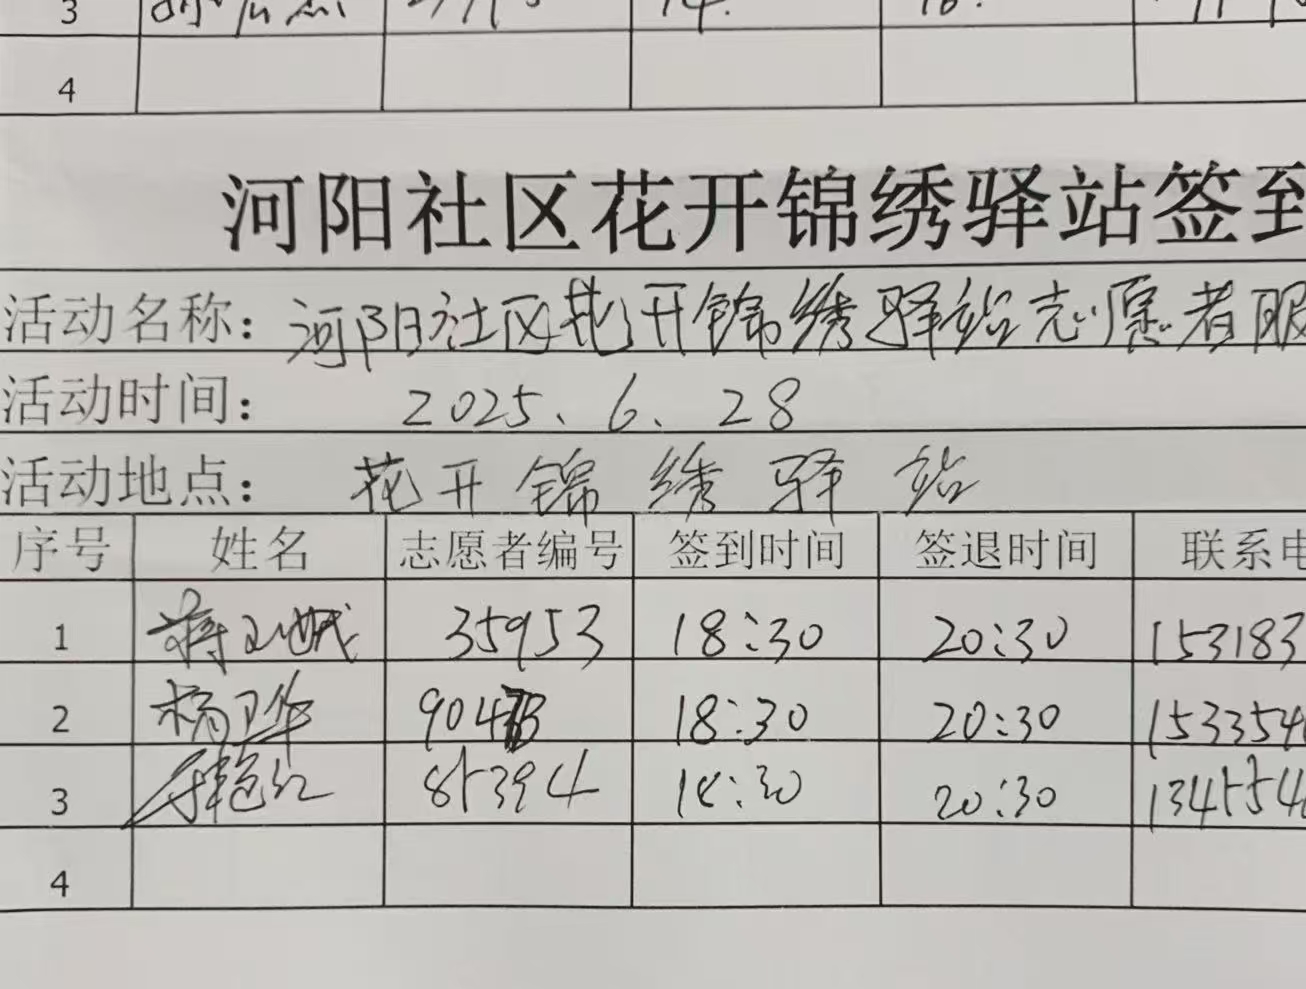 3
4
河阳社区花开锦绣驿站签到
活动名称：河阳社区花开锦绣驿站志愿者服
活动时间： 2025、6、28
活动地点： 花开锦绣驿站
序号 姓名 志愿者编号 签到时间 签退时间 联系电
1 蒋 35953 18:30 20:30 153183
2 杨卫华 904 18:30 20:30 153354
3 艳红 85394 18:30 20:30 134554
4